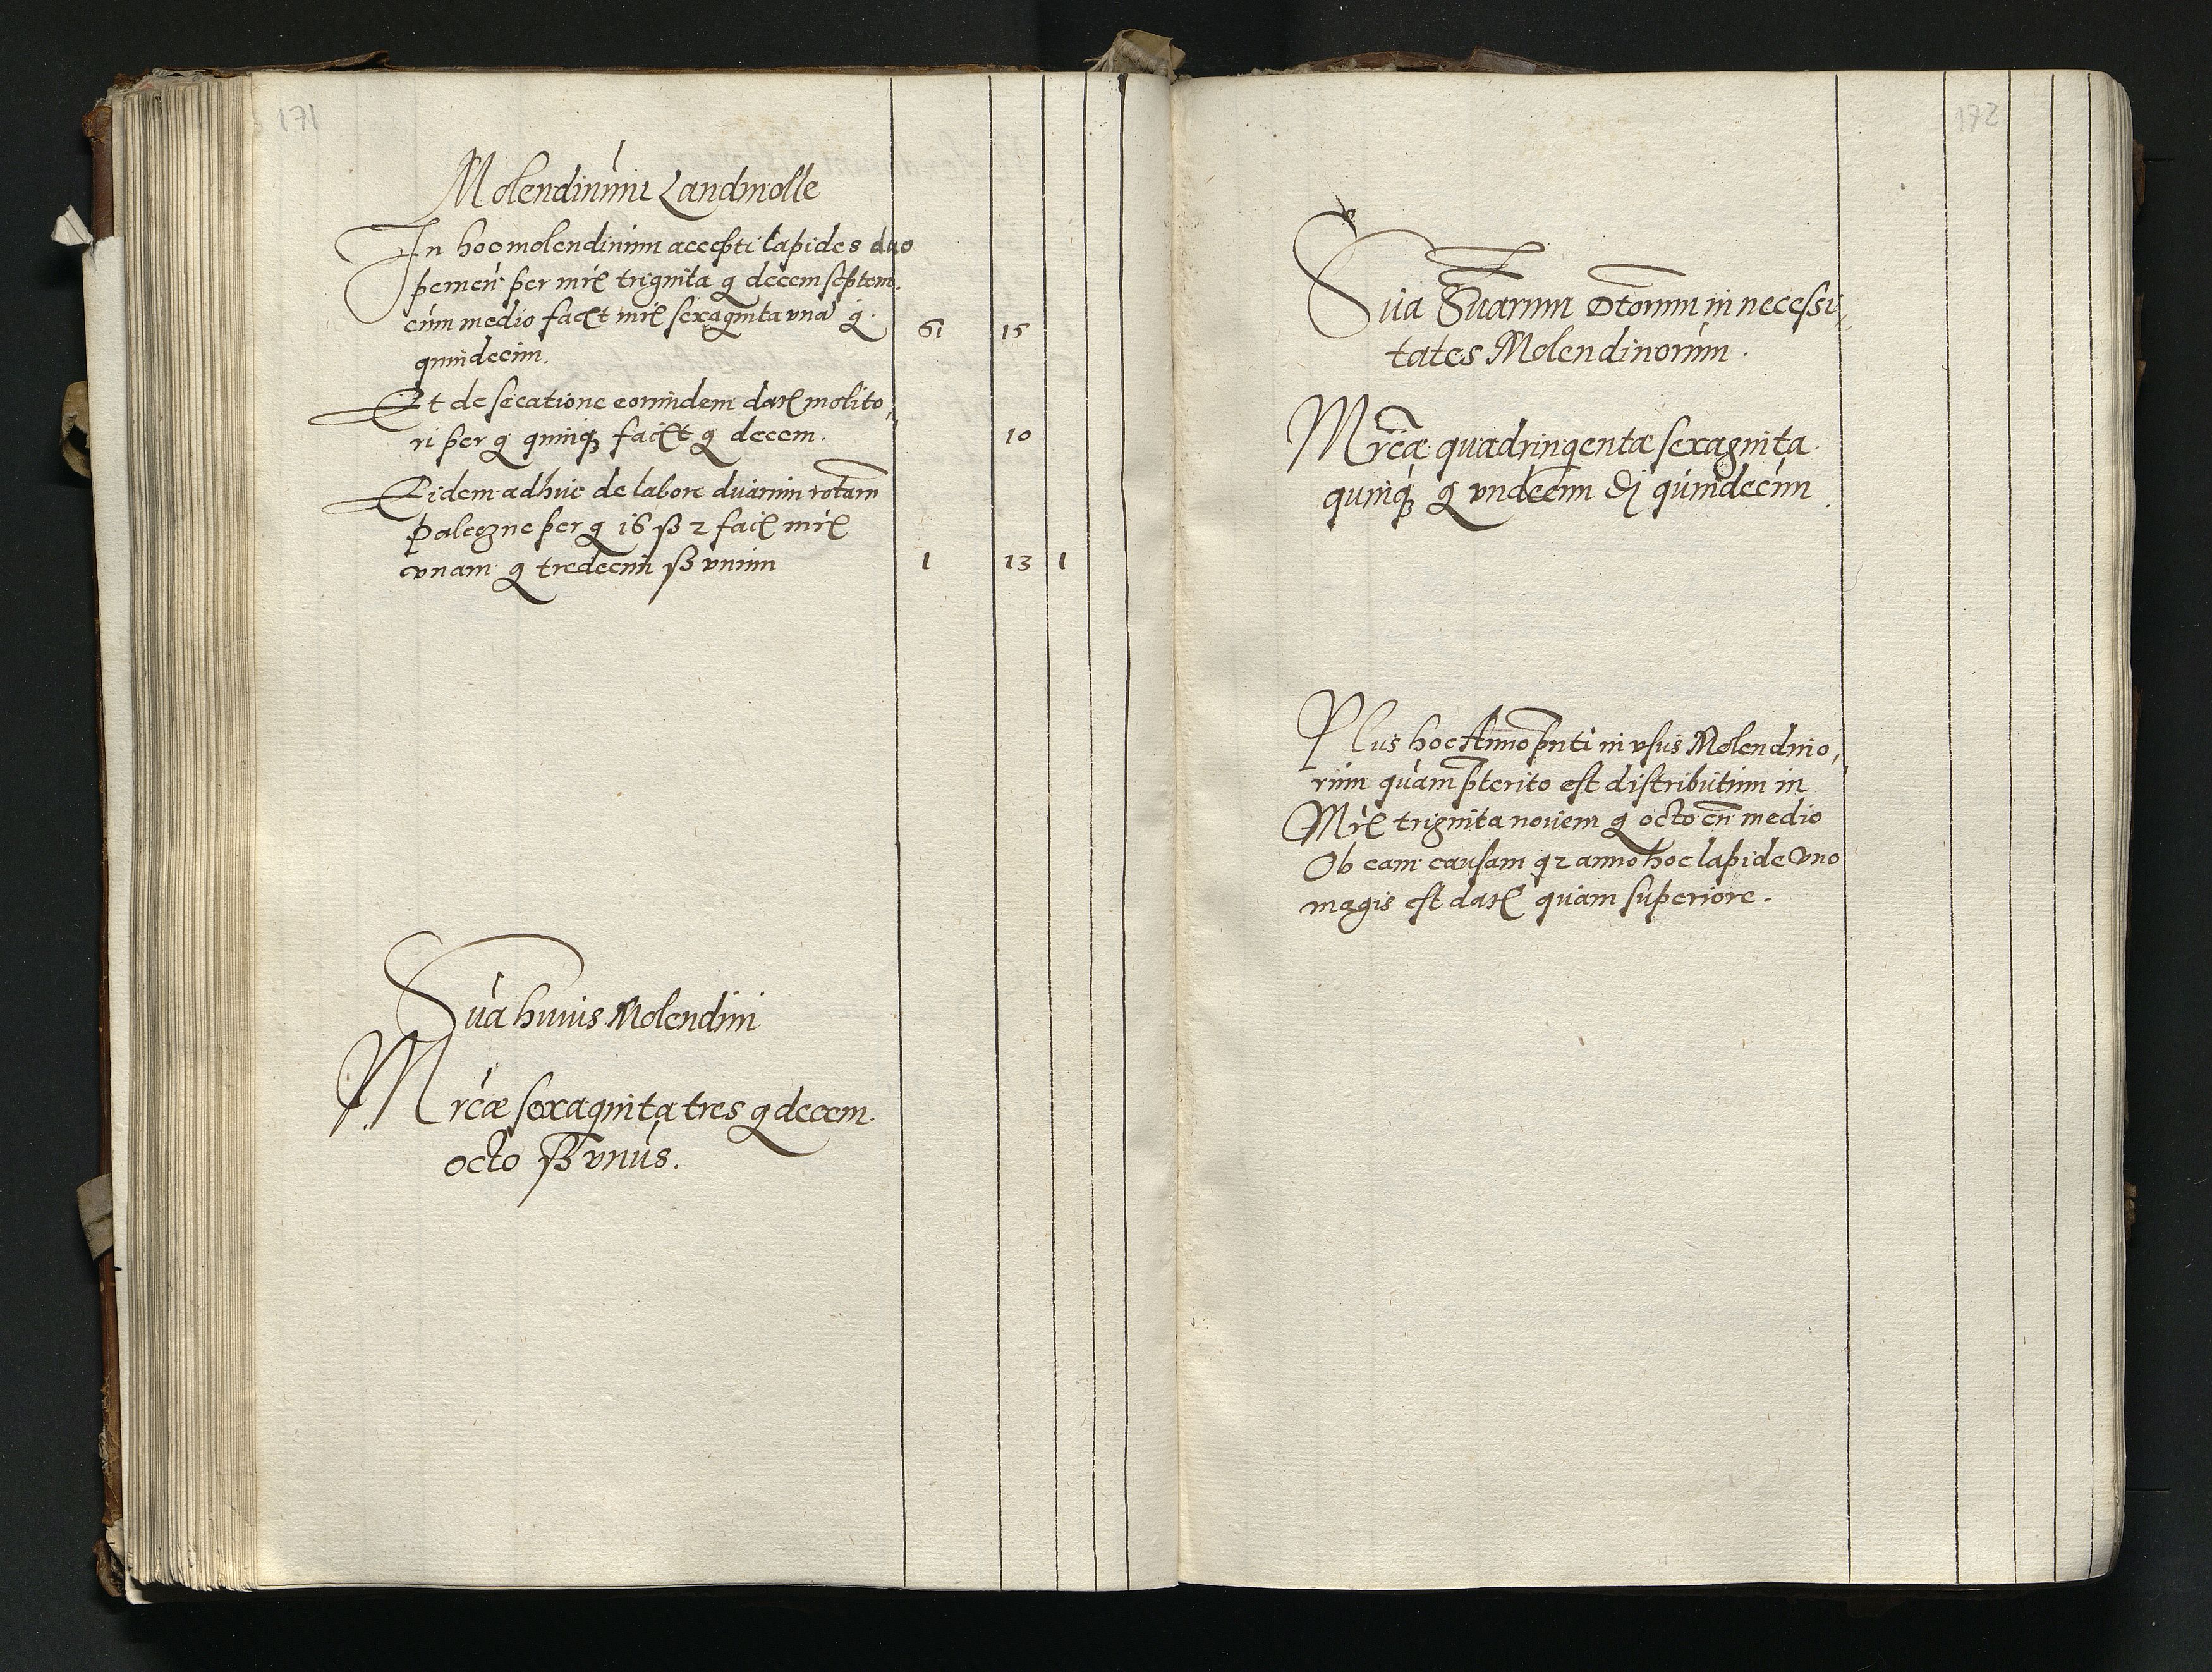 171
Molendinum Landmolle
In hoc molendinum accepti lapides duo
pemen per mrc trigінta g decem septem
cum medio faciet mrc sexaginta una g
quindecim. 61 15
Et de secatione eorundem dare molito,
ri per g quinq faciet g decem. 10
Eidem adhuc de labore duarum rotam
paleczne per g 16 ß 2 fac mrc
unam g tredecim ß unum 1 13 1
Sua huius Molendini
Mrcæ sexaginta tres g decem
octo ß unus.
172
Sua Suarum Dtorum in necessi,
tates Molendinorum.
Mrcæ quadringentæ sexaginta
quinq g undecim Di quindecim.
Plus hoc Anno pnti in usus Molendino,
rum quam pterito est distributum in
Mrc triginta novem g octo cum medio
Ob eam causam qz anno hoc lapide Uno
magis est dare quam superiore.